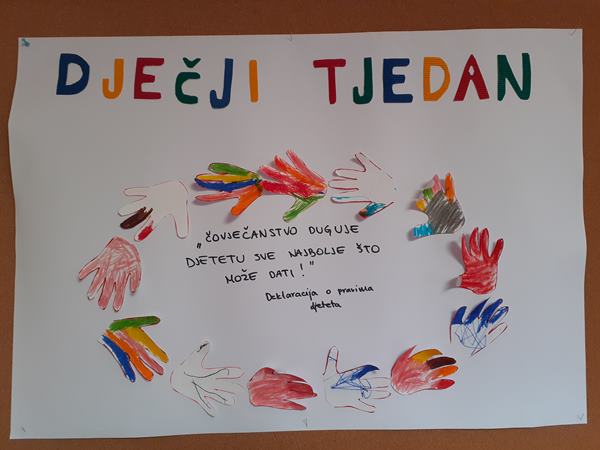 DJEČJI TJEDAN
„ČOVJEČANSTVO DUGUJE
DJETETU SVE NAJBOLJE ŠTO
MOŽE DATI!"
Deklaracija o pravima
djeteta